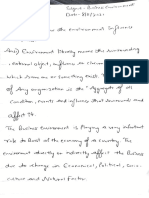 Subject:- Business Environment
Date:-
the environment Influence
Ans) Environment literally means the surrounding
external object, influence or circumstances
which some one or Something exist. The
of any organization is the "Aggregate of all
Condition, events and influence that surrounds and
affect it.
The Business Environment is Playing a very important
role to boost of the economy of a country. The
environment directly or indirectly affect the Business
due to change in Economical, Political,
culture and Natural Factor.